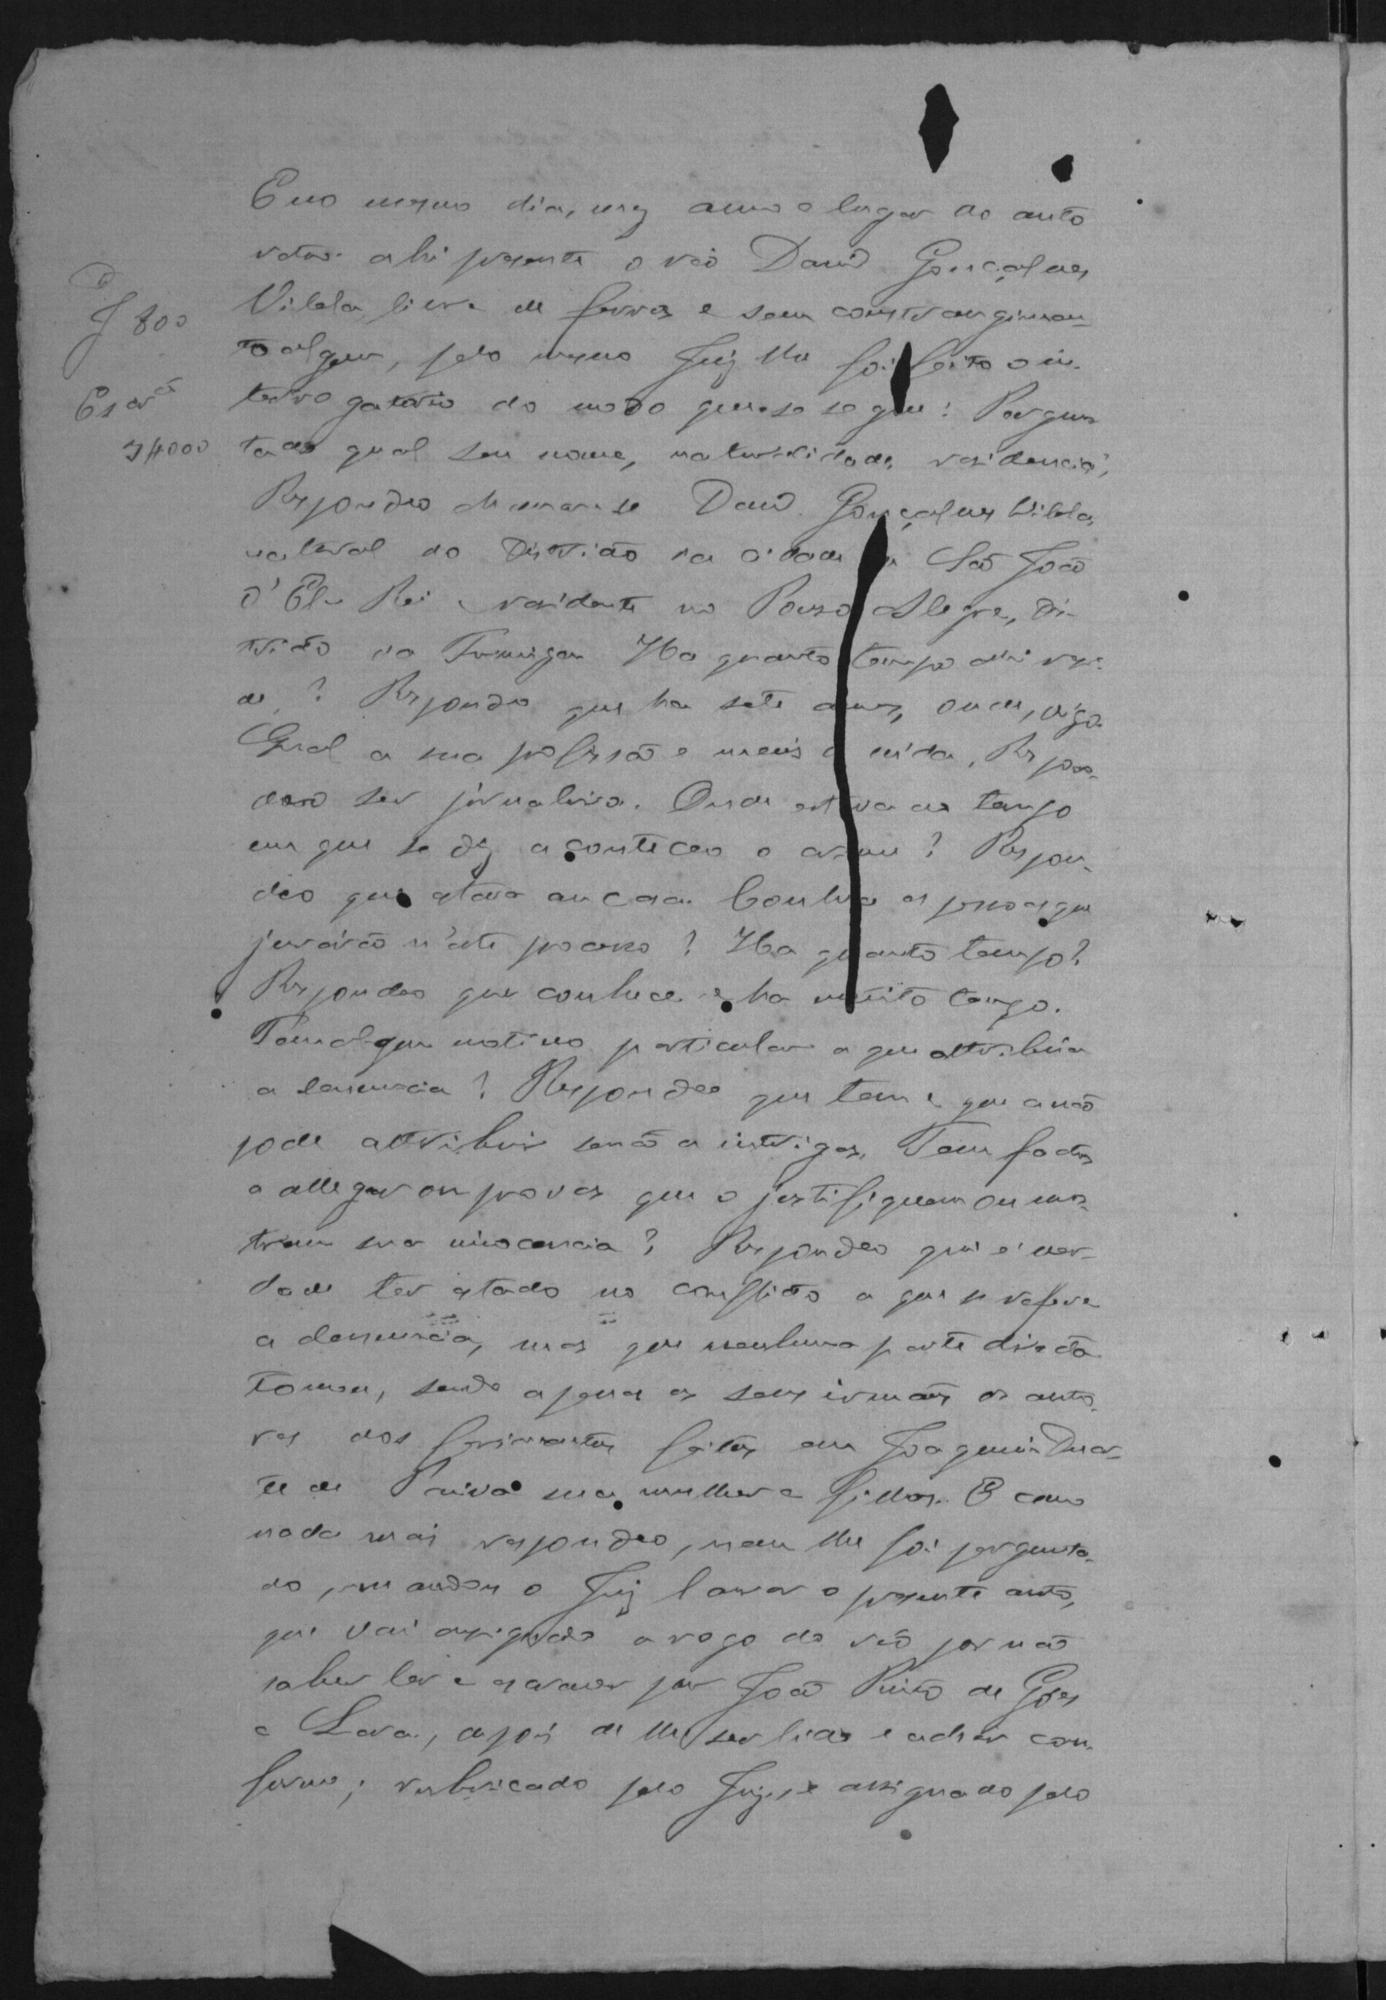 E no mesmo dia, mez anno e lugar do auto
retro ahi presente o réo David Gonçalves
Vilela livre de ferros e sem constrangimen-
to algum, pelo mesmo Juiz lhe foi feito o in-
J 800
terrogatorio do modo que se segue: Pergun
Escrão
tado qual seu nome, naturalidade, residencia?
3#000
Respondeo chamar-se David Gonçalves Vilela,
natural do Districto da Cidade de São João
d'El Rei e residente no Pouso Alegre, Dis-
tricto da Formiga. Ha quanto tempo ahi resi-
de? Respondeo que ha sete annos, digo.
Qual a sua profissão e meios de vida, Respon-
deo ser jornaleiro. Onde estava ao tempo
em que se diz aconteceo o crime? Respon-
deo que estava em casa. Conhece as pessoas que
jurárão n'este processo? Ha quanto tempo?
Respondeo que conhece e ha muito tempo.
Tem algum motivo particular a que attribúa
a denuncia? Respondeo que tem e que a não
pode attribuir senão a intrigas. Tem factos
a allegar ou provas que o justifiquem ou mos-
trem sua innocencia? Respondeo que é ver-
dade ter estado no conflicto a que se refere
a denuncia, mas que nenhuma parte directa
tomou, sendo apenas os seus irmãos os auto-
res dos ferimentos feitos em Joaquim Duar-
te de Paiva sua mulher e filhos. E como
nada mais respondeo, nem lhe foi pergunta-
do, mandou o Juiz lavrar o presente auto,
que vai assignado a rogo do réo por não
saber ler e escrever por João Pinto de Góes
e Lara, depois de lhe ser lido e achar con-
forme; rubricado pelo Juiz, e assignado pelo